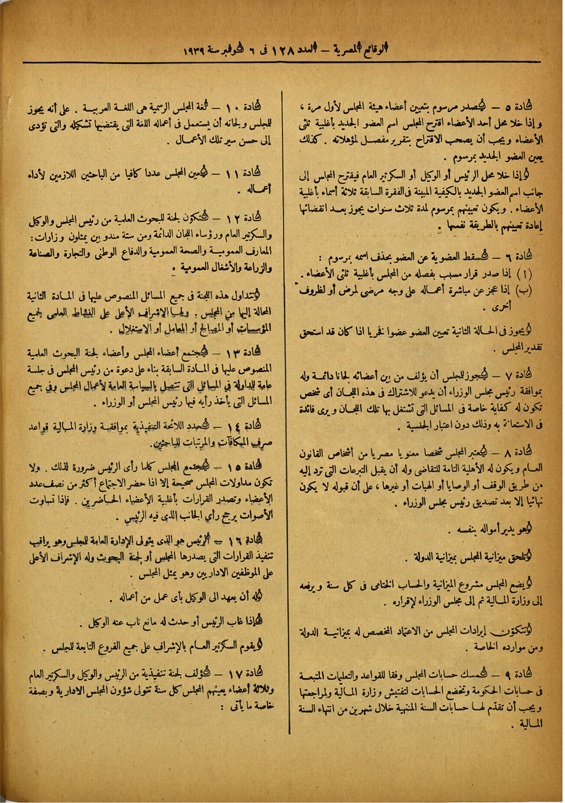 الوقائع المصرية – العدد ١٢٨ فى ٦ نوفمبر سنة ١٩٣٩
مادة ٥ – يصدر مرسوم بتعيين أعضاء هيئة المجلس لأول مرة ،
وإذا خلا محل أحد الأعضاء اقترح المجلس اسم العضو الجديد بأغلبية ثلثى
الأعضاء ويجب أن يصحب الاقتراح بتقرير مفصل لمؤهلاته . كذلك
يعين العضو الجديد بمرسوم .
وإذا خلا محل الرئيس أو الوكيل أو السكرتير العام فيقترح المجلس إلى
جانب اسم العضو الجديد بالكيفية المبينة فى الفقرة السابقة ثلاثة أسماء بأغلبية
الأعضاء . ويكون تعيينهم بمرسوم لمدة ثلاث سنوات يجوز بعد انقضائها
إعادة تعيينهم بالطريقة نفسها .
مادة ٦ – تسقط العضوية عن العضو بحذف اسمه بمرسوم :
(١) إذا صدر قرار مسبب بفصله من المجلس بأغلبية ثلثى الأعضاء .
(ب) إذا عجز عن مباشرة أعماله على وجه مرضى لمرض أو لظروف
أخرى .
ويجوز فى الحالة الثانية تعيين العضو عضوا فخريا اذا كان قد استحق
تقدير المجلس .
مادة ٧ – يجوز للمجلس أن يؤلف من بين أعضائه لجانا دائمة وله
بموافقة رئيس مجلس الوزراء أن يدعو للاشتراك فى هذه اللجان أى شخص
تكون له كفاية خاصة فى المسائل التى تشتغل بها تلك اللجان ويرى فائدة
فى الاستعانة به وذلك دون اعتبار الجنسية .
مادة ٨ – يعتبر المجلس شخصا معنويا مصريا من أشخاص القانون
العام ويكون له الأهلية التامة للتقاضى وله أن يقبل التبرعات التى ترد إليه
من طريق الوقف أو الوصايا أو الهبات أو غيرها ، على أن قبوله لا يكون
نهائيا إلا بعد تصديق رئيس مجلس الوزراء .
وهو يدير أمواله بنفسه .
وتلحق ميزانية المجلس بميزانية الدولة .
ويضع المجلس مشروع الميزانية والحساب الختامى فى كل سنة ويرفعه
إلى وزارة المالية ثم إلى مجلس الوزراء لإقراره .
وتتكون إيرادات المجلس من الاعتماد المخصص له بميزانية الدولة
ومن موارده الخاصة .
مادة ٩ – تمسك حسابات المجلس وفقا للقواعد والتعليمات المتبعة
فى حسابات الحكومة وتخضع الحسابات لتفتيش وزارة المالية ولمراجعتها
ويجب أن تقدم لها حسابات السنة المنتهية خلال شهرين من انتهاء السنة
المالية .
مادة ١٠ – لغة المجلس الرسمية هى اللغة العربية . على أنه يجوز
للمجلس ولجانه أن يستعمل فى أعماله اللغة التى يقتضيها تشكيله والتى تؤدى
إلى حسن سير تلك الأعمال .
مادة ١١ – يعين المجلس عددا كافيا من الباحثين اللازمين لأداء
أعماله .
مادة ١٢ – تتكون لجنة للبحوث العلمية من رئيس المجلس والوكيل
والسكرتير العام ورؤساء اللجان الدائمة ومن ستة مندوبين يمثلون وزارات :
المعارف العمومية والصحة العمومية والدفاع الوطنى والتجارة والصناعة
والزراعة والأشغال العمومية .
وتتداول هذه اللجنة فى جميع المسائل المنصوص عليها فى المادة الثانية
المحالة إليها من المجلس . ولها الاشراف الأعلى على النشاط العلمى لجميع
المؤسسات أو المصالح أو المعامل أو الاستغلال .
مادة ١٣ – يجتمع أعضاء المجلس وأعضاء لجنة البحوث العلمية
المنصوص عليها فى المادة السابقة بناء على دعوة من رئيس المجلس فى جلسة
عامة للمداولة فى المسائل التى تتصل بالسياسة العامة لأعمال المجلس وفى جميع
المسائل التى يأخذ رأيه فيها رئيس المجلس أو الوزراء .
مادة ١٤ – تحدد اللائحة التنفيذية بموافقة وزارة المالية قواعد
صرف المكافآت والمرتبات للباحثين.
مادة ١٥ – يجتمع المجلس كلما رأى الرئيس ضرورة لذلك . ولا
تكون مداولات المجلس صحيحة إلا اذا حضر الاجتماع أكثر من نصف عدد
الأعضاء وتصدر القرارات بأغلبية الأعضاء الحاضرين . فإذا تساوت
الأصوات يرجح رأى الجانب الذى فيه الرئيس .
مادة ١٦ – الرئيس هو الذى يتولى الإدارة العامة للمجلس وهو يراقب
تنفيذ القرارات التى يصدرها المجلس أو لجنة البحوث وله الإشراف الأعلى
على الموظفين الاداريين وهو يمثل المجلس .
وله أن يعهد الى الوكيل بأى عمل من أعماله .
فإذا غاب الرئيس أو حدث له مانع ناب عنه الوكيل .
ويقوم السكرتير العام بالإشراف على جميع الفروع التابعة للمجلس .
مادة ١٧ – تؤلف لجنة تنفيذية من الرئيس والوكيل والسكرتير العام
وثلاثة أعضاء يعينهم المجلس كل سنة تتولى شؤون المجلس الادارية وبصفة
خاصة ما يأتى :